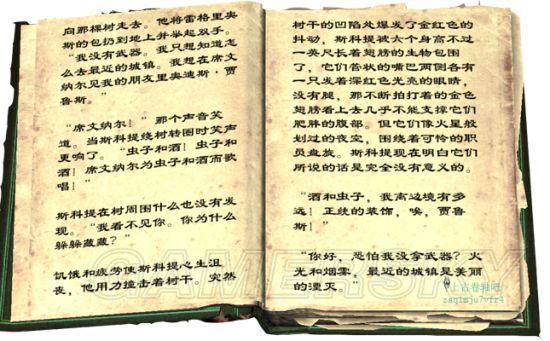 向那棵树走去。他将雷格里奥
斯的包扔到地上并举起双手。
“我没有武器。我只想知道怎
么去最近的城镇。我想在席文
纳尔见我的朋友里奥迪斯·贾
鲁斯。”
“席文纳尔！”那个声音笑
道。当斯科提绕树转圈时笑声
更响了。“虫子和酒！虫子和
酒！席文纳尔为虫子和酒而歌
唱！”
斯科提在树周围什么也没有发
现。“我看不见你。你为什么
躲躲藏藏？”
饥饿和疲劳使斯科提心生沮
丧，他用力撞击着树干。突然
树干的凹陷处爆发了金红色的
抖动，斯科提被六个身高不过
一英尺长着翅膀的生物包围
了，它们管状的嘴巴两侧各有
一只发着深红色光亮的眼睛，
没有腿，那不断拍打着的金色
翅膀看上去几乎不能支撑它们
肥胖的腹部。但它们像火星般
划过的夜空，围绕着可怜的职
员盘旋。斯科提现在明白它们
所说的话是完全没有意义的。
“酒和虫子，我离边境有多
远！正统的装饰，唉，贾鲁
斯！”
“你好，恐怕我没拿武器？火
光和烟雾，最近的城镇是美丽
的湮灭。”
GAMERSKY
上古卷轴吧